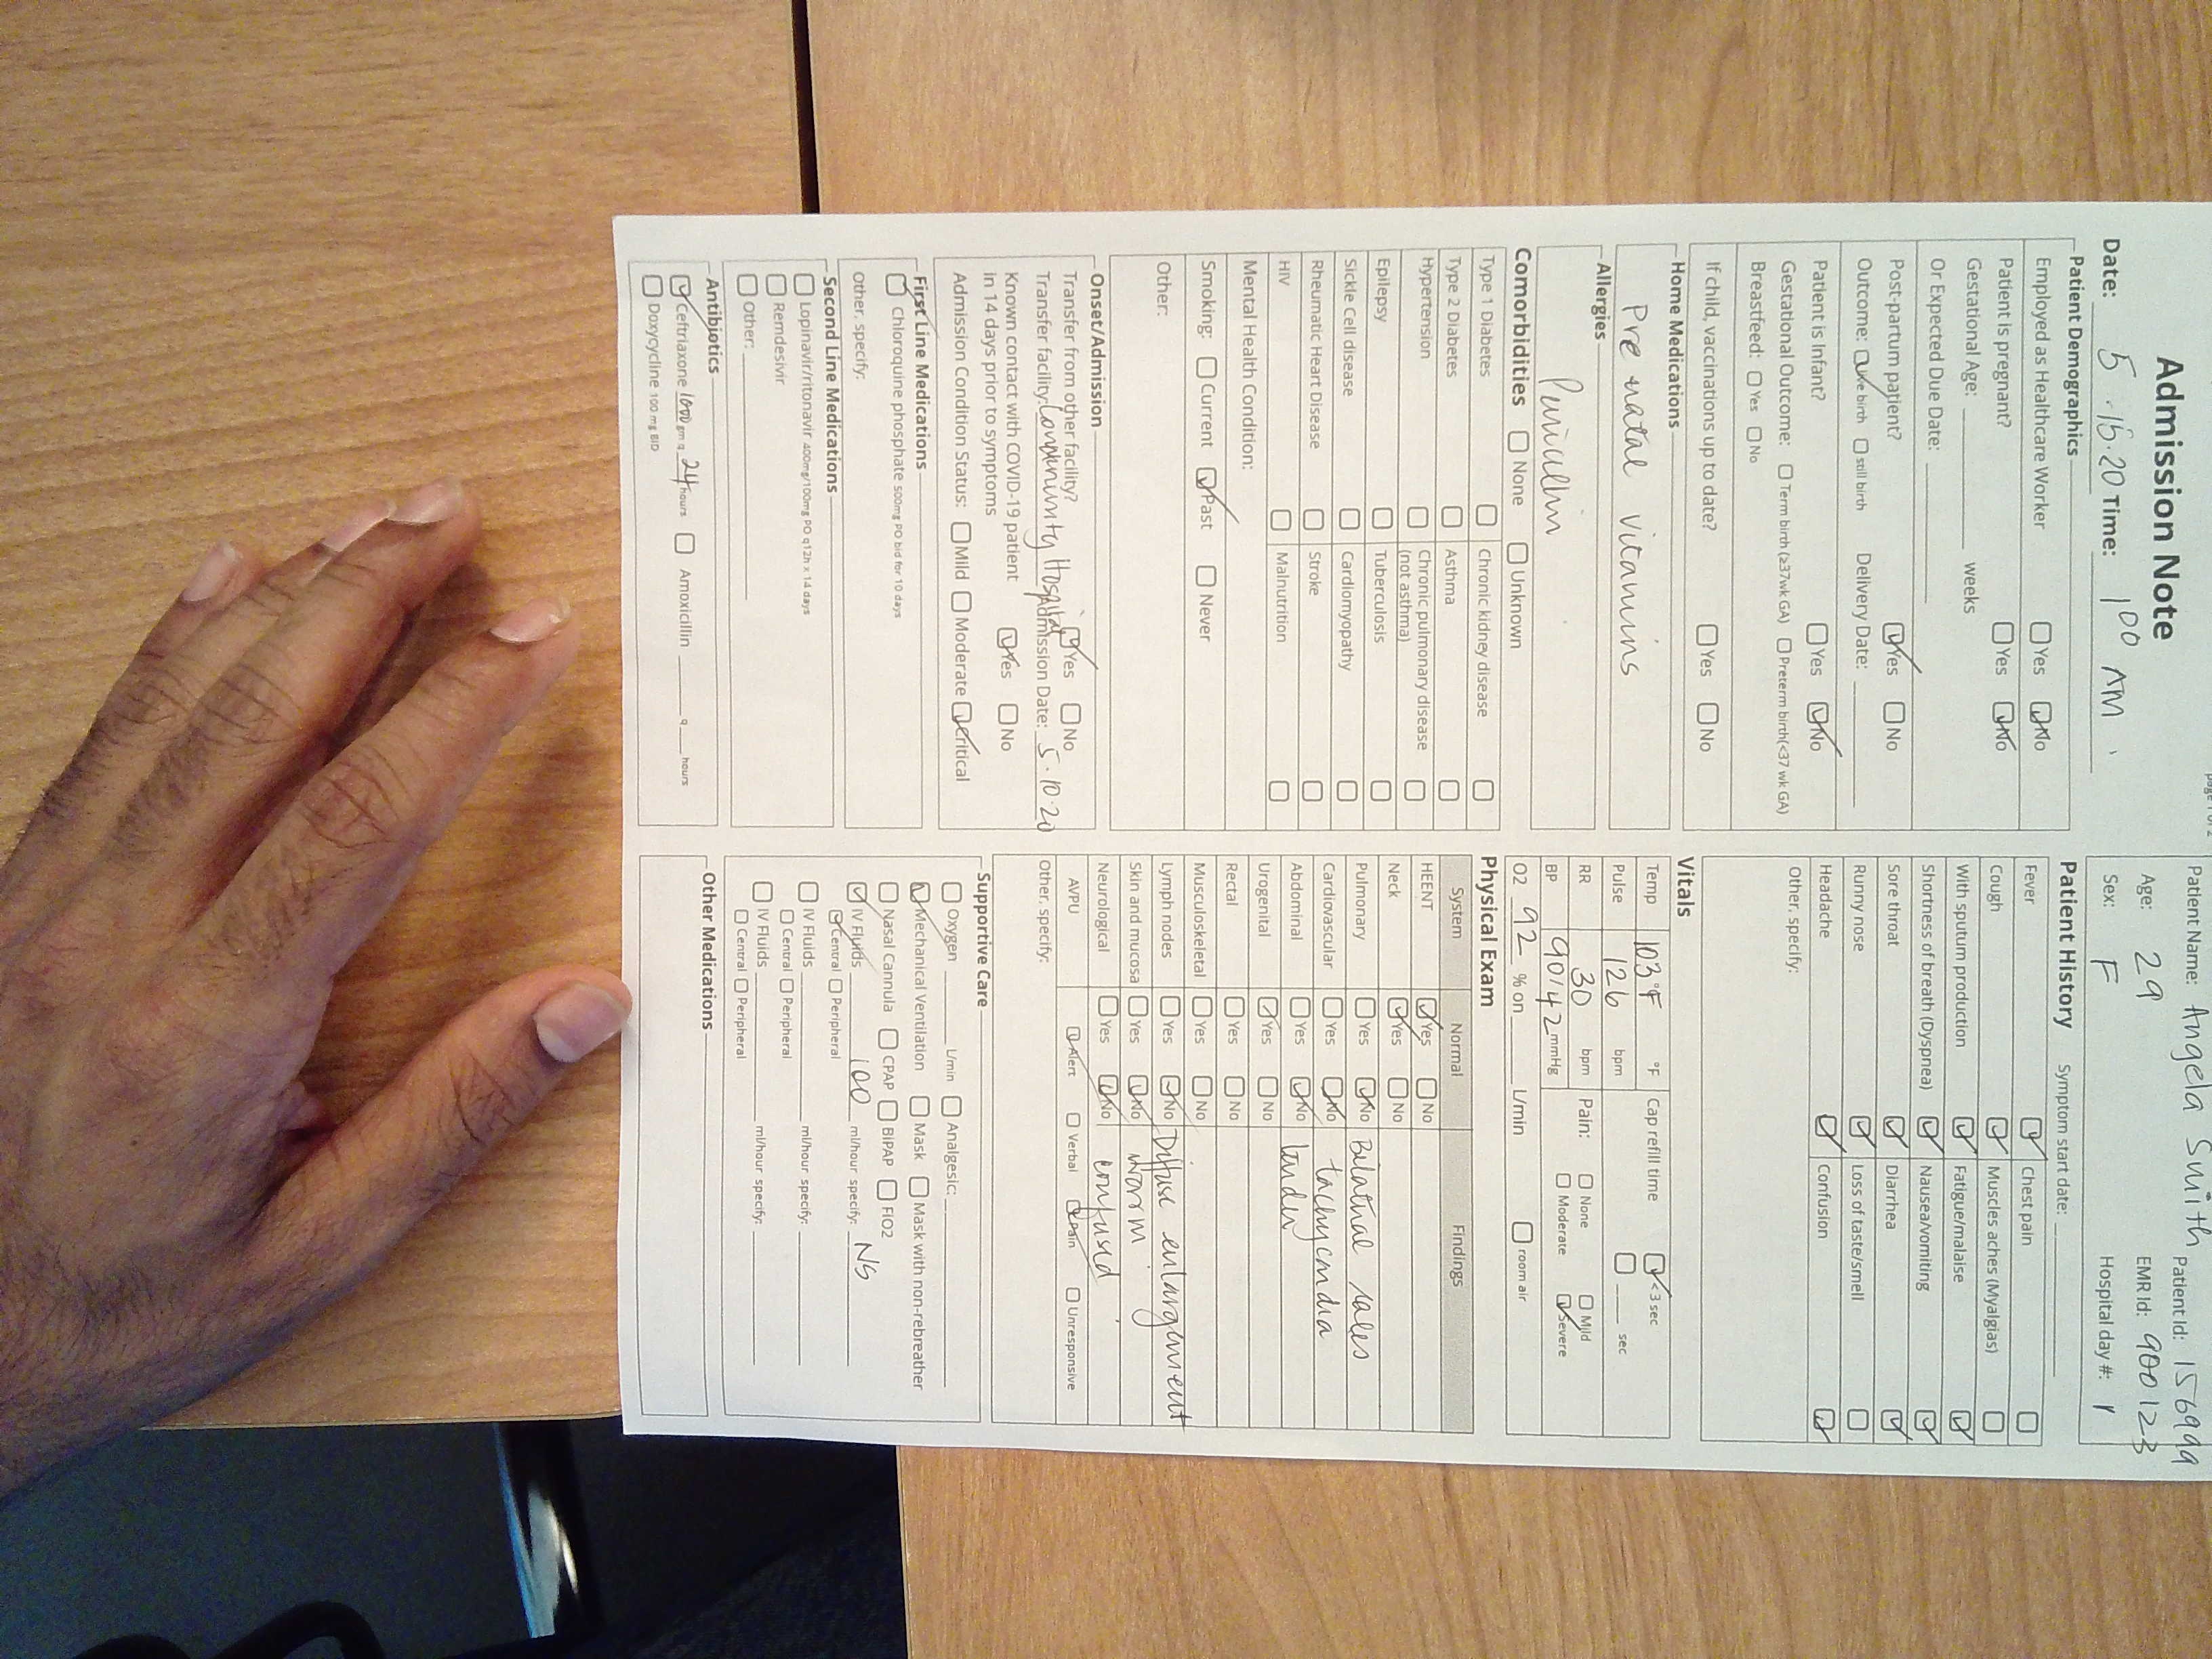 Admission Note
Date: 5.16.20 Time: 1:00 AM
Patient Demographics
Employed as Healthcare Worker Yes No
Patient is pregnant? Yes No
Gestational Age: weeks
Or Expected Due Date:
Post-partum patient? Yes No
Outcome: Live birth still birth Delivery Date:
Patient is Infant? Yes No
Gestational Outcome: Term birth (≥37wk GA) Preterm birth(<37 wk GA)
Breastfeed: Yes No
If child, vaccinations up to date? Yes No
Home Medications
Pre natal vitamins
Allergies
Penicillin
Comorbidities None Unknown
Type 1 Diabetes Chronic kidney disease
Type 2 Diabetes Asthma
Hypertension Chronic pulmonary disease
(not asthma)
Epilepsy Tuberculosis
Sickle Cell disease Cardiomyopathy
Rheumatic Heart Disease Stroke
HIV Malnutrition
Mental Health Condition:
Smoking: Current Past Never
Other:
Onset/Admission
Transfer from other facility? Yes No
Transfer facility: Community Hospital Admission Date: 5.10.20
Known contact with COVID-19 patient
in 14 days prior to symptoms Yes No
Admission Condition Status: Mild Moderate Critical
First Line Medications
Chloroquine phosphate 500mg PO bid for 10 days
Other, specify:
Second Line Medications
Lopinavir/ritonavir 400mg/100mg PO q12h x 14 days
Remdesivir
Other:
Antibiotics
Ceftriaxone 1000 gm q 24 hours Amoxicillin q hours
Doxycycline 100 mg BID
Patient Name: Angela Smith Patient Id: 156999
Age: 29 EMR Id: 900123
Sex: F Hospital day #: 1
Patient History Symptom start date:
Fever Chest pain
Cough Muscles aches (Myalgias)
With sputum production Fatigue/malaise
Shortness of breath (Dyspnea) Nausea/vomiting
Sore throat Diarrhea
Runny nose Loss of taste/smell
Headache Confusion
Other, specify:
Vitals
Temp 103°F °F Cap refill time <3 sec
Pulse 126 bpm sec
RR 30 bpm Pain: None Mild
BP 90/42 mmHg Moderate Severe
O2 92 % on L/min room air
Physical Exam
System Normal Findings
HEENT Yes No
Neck Yes No
Pulmonary Yes No Bilateral rales
Cardiovascular Yes No tachycardia
Abdominal Yes No tender
Urogenital Yes No
Rectal Yes No
Musculoskeletal Yes No
Lymph nodes Yes No Diffuse enlargement
Skin and mucosa Yes No warm
Neurological Yes No confused
AVPU Alert Verbal Pain Unresponsive
Other, specify:
Supportive Care
Oxygen L/min Analgesic:
Mechanical Ventilation Mask Mask with non-rebreather
Nasal Cannula CPAP BiPAP FIO2
IV Fluids 100 ml/hour specify: NS
Central Peripheral
IV Fluids ml/hour specify:
Central Peripheral
IV Fluids ml/hour specify:
Central Peripheral
Other Medications